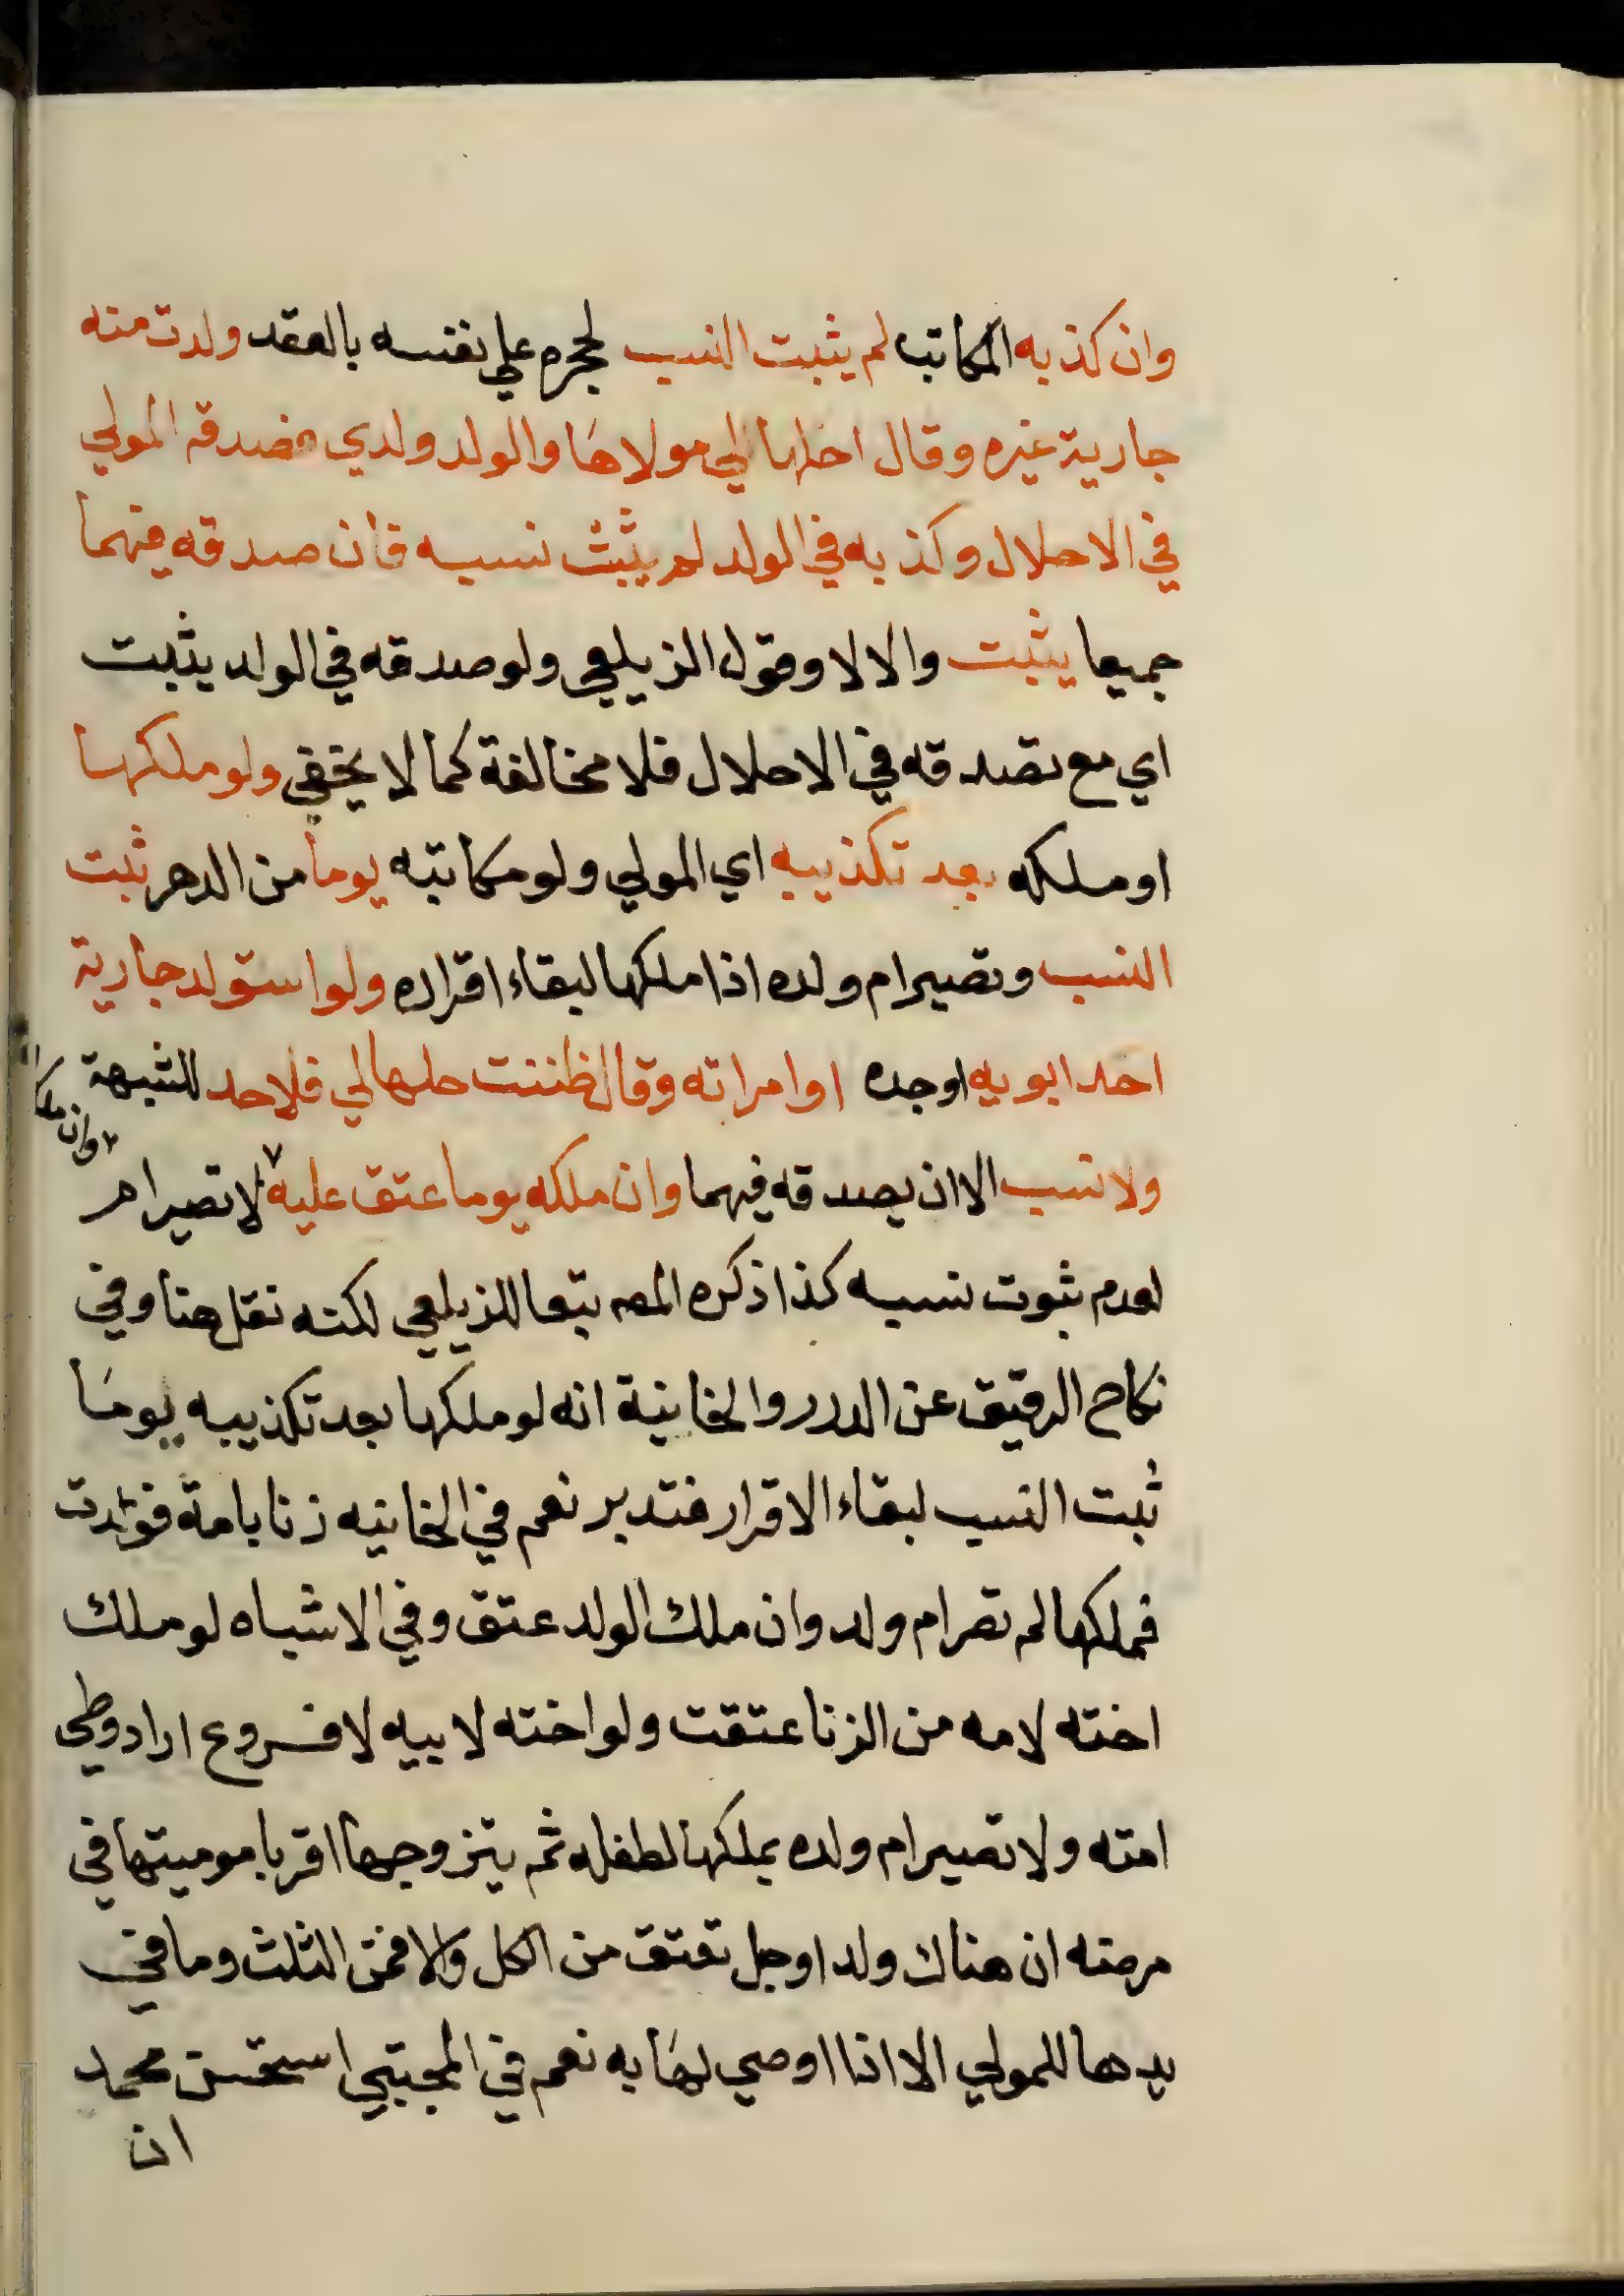 وان كذبه المكاتب لم يثبت النسب لحجره علي نفسه بالعقد ولدت منه
جارية غيره وقال احلها لي مولاها والولد ولدي فصدقه المولي
في الاحلال وكذبه في الولد لم يثبت نسبه فان صدقه فيهما
جميعا يثبت والا لا وقول الزيلعي ولو صدقه في الولد يثبت
اي مع تصدقه في الاحلال فلا مخالفة كما لا يخفي ولو ملكها
او ملكه بعد تكذيبه اي المولي ولو مكاتبه يوما من الدهر ثبت
النسب وتصير ام ولده اذا ملكها لبقاء اقراره ولو استولد جارية
احد ابويه اوجده او امراته وقال ظننت حلها لي فلا حد للشبهة
ولا نسب الا ان يصدقه فيهما وان ملكه يوما عتق عليه لا تصير ام
وان
لعدم ثبوت نسبه كذا ذكره المصه تبعا للزيلعي لكنه نقل هنا وفي
نكاح الرقيق عن الدرر والخانية انه لو ملكها بعد تكذيبه يوما
ثبت النسب لبقاء الاقرار فتدبر نعم في الخانيه زنا بامة فولدت
فملكها لم تصر ام ولد وان ملك الولد عتق وفي الاشباه لو ملك
اخته لامه من الزنا عتقت ولو اخته لابيه لا فروع اراد وطي
امته ولا تصير ام ولده يملكها لطفله ثم يتزوجها اقر باموميتها في
مرضه ان هناك ولد اوحبل تعتق من الكل والا فمن الثلث وما في
يدها للمولي الا اذا اوصي لها به نعم في المجتبي استحسن محمد
ان